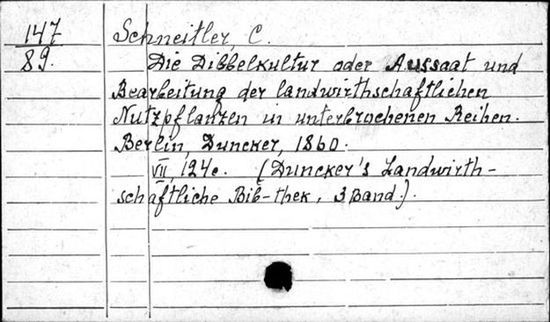 147 Schneitler, C.
89. Die Dibbelkultur oder Aussaat und
Bearbeitung der landwirthschaftlichen
Nutzpflanzen in unterbrochenen Reihen.
Berlin, Duncker, 1860.
VII, 124c. (Duncker's Landwirth-
schaftliche Bib-thek, 3 Band.).